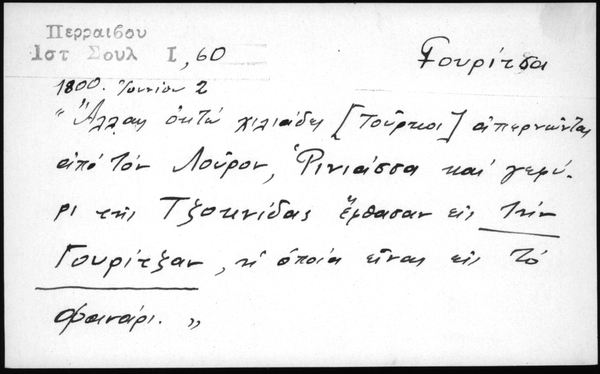 Περραιβου
Ιστ Σουλ Ι, 60
Γουρίτσα
1800. Ιουνίου 2
"Ἄλλας ὀκτώ χιλιάδες [Τοῦρκοι] ἀπερνῶντας
ἀπό τόν Λοῦρον, Ῥινιάσσα καί γεφύ-
ρι τῆς Τζοκνίδας ἔφθασαν εἰς τήν
Γουρίτζαν, ἡ ὁποία εἶναι εἰς τό
Φανάρι."